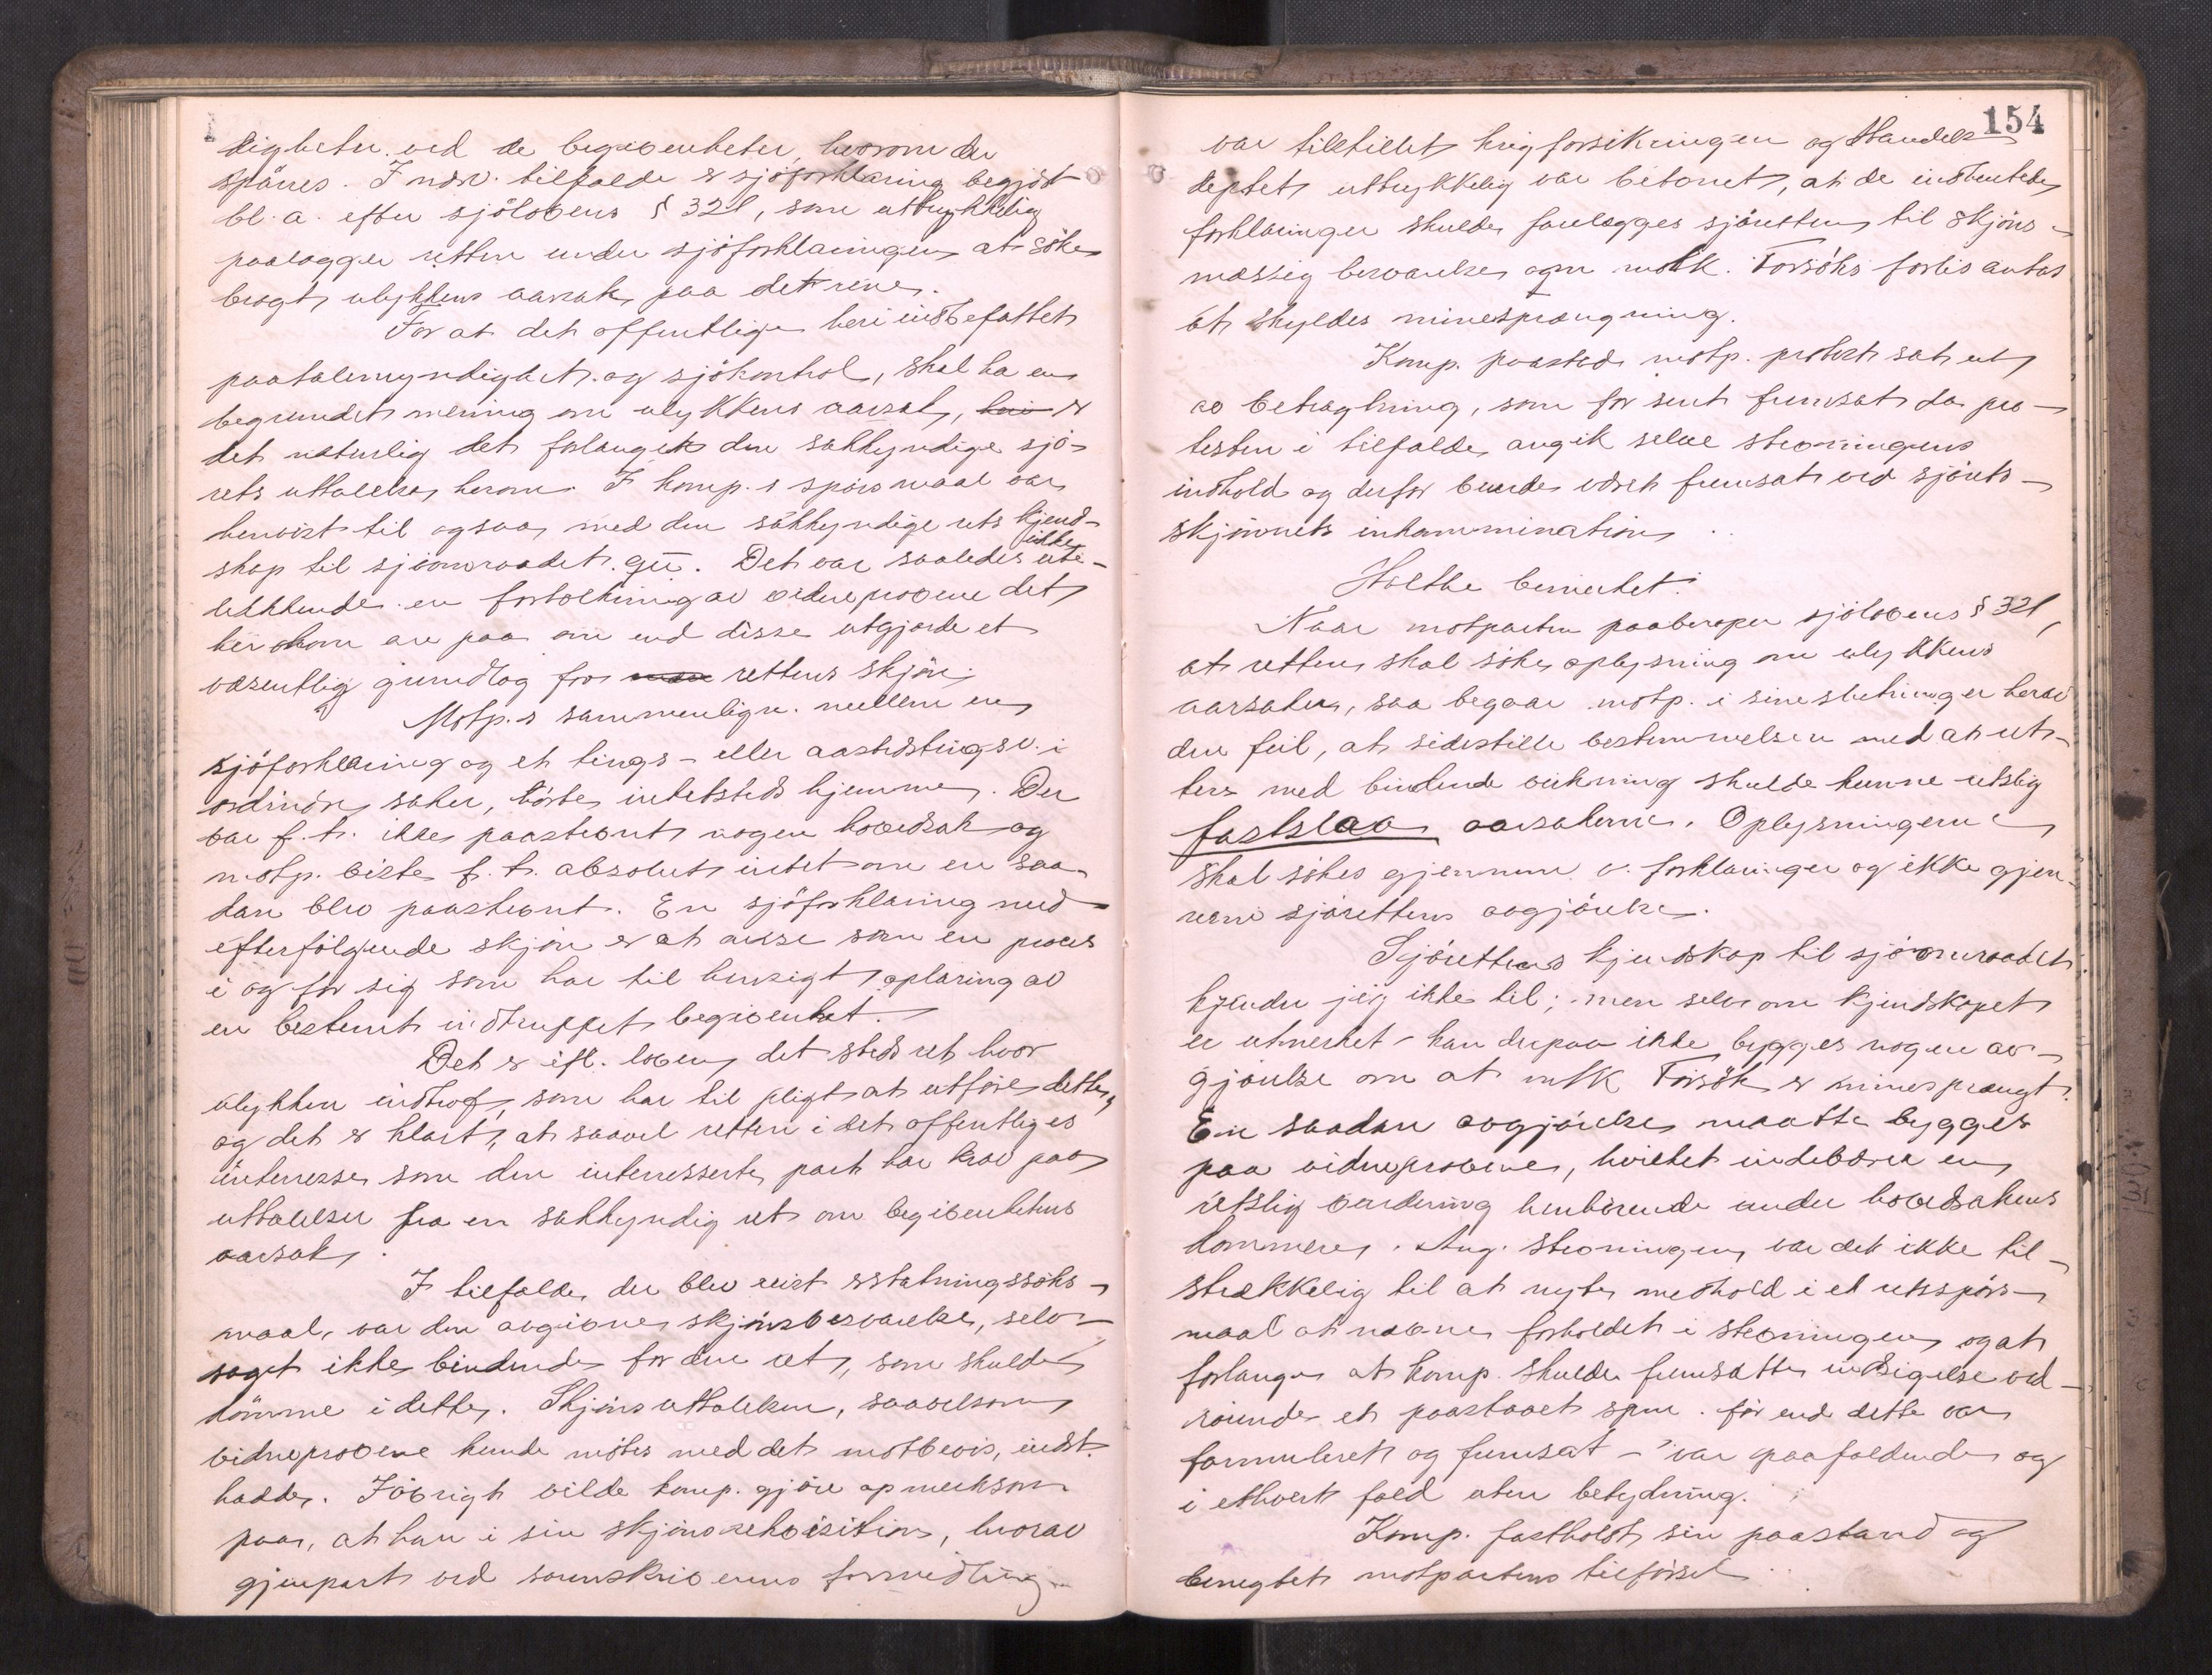 digheter ved de begivenheter, hvorom der
spörres. I nærv. tilfælde er sjöforklaring begjært
bl. a. efter sjölovens § 321, som uttrykkelig
paalægger retten under sjöforklaringen at söke
bragt ulykkens aarsak paa det rene.
For at det offentlige heri indbefattet
paatalemyndighet og sjökontrol, skal ha en
begrundet mening om ulykkens aarsak, er
det naturlig det forlanget den sakkyndige sjö-
rets uttalelse herom. I komp.s spörsmaal var
henvist til ogsaa med den sakkyndige rets kjend-
skap til sjöomraadet. Det var saaledes ikke ute-
lukkende en fortolkning av vidneprovene det
her kom an paa om end disse utgjorde et
væsentlig grundlag for rettens skjön.
Motp.s sammenlign. mellem en
sjöforklaring og et tings- eller aastedstingsv. i
ordinære saker, hörte intetsteds hjemme. Der
var f. t. ikke paastevnt nogen hovedsak og
motp. viste f. t. absolut intet om en saa-
dan blev paastevnt. En sjöforklaring med
efterfölgende skjön er at anse som en proces
i og for sig som har til hensigt oplaring av
en bestemt indtruffet begivenhet.
Det er ifl. loven det steds ret hvor
ulykken indtraf, som har til pligt at utföre dette,
og det er klart, at saavel retten i det offentliges
interesse som den interesserte part har krav paa
uttalelser fra en sakkyndig ret om begivenhetens
aarsak.
I tilfælde der blev reist erstatningssöks-
maal, var den avgivne skjönsbesvarelse, selv-
sagt ikke bindende for den ret, som skulde
dömme i dette. Skjönsuttalelsen, saavelsom
vidneprovene kunde mötes med det motbevis, indst.
hadde. Iövrigt vilde komp. gjöre opmerksom
paa, at han i sin skjönsrekvisition, hvorav
gjenpart ved sorenskriverens formidling
154
var tilstillet krigforsikringen og Handels
deptet uttrykkelig var betonet, at de indhentede
forklaringer skulde forelægges sjöretten til skjöns-
mæssig besvarelse om m/k. Forsöks forlis antas
at skyldes minesprængning.
Komp. paastod motp. protest sat ut
av betragtning, som for sent fremsat da pro-
testen i tilfælde angik selve stevningens
indhold og derfor burde været fremsat ved sjörets-
skjönnets inkammination.
Holthe bemerket:
Naar motparten paaberoper sjölovens § 321,
at retten skal söke oplysning om ulykkens
aarsaker, saa begaar motp. i sine slutninger herav
den feil, at sidestille bestemmelsen med at ret-
ten med bindende virkning skulde kunne retslig
fastslaa aarsakerne. Oplysningerne
skal sökes gjennem v. forklaringer og ikke gjen-
nem sjörettens avgjörelse.
Sjörettens kjendskap til sjöomraadet
kjender jeg ikke til; men selv om kjendskapet
er utmerket - kan derpaa ikke bygges nogen av-
gjörelse om at m/k Forsök er minesprængt.
En saadan avgjörelse maatte bygges
paa vidneprovene, hvilket indebærer en
retslig vurdering henhörende under hovedsakens
dommere. Ang. stevningen var det ikke til-
strækkelig til at nyte medhold i et retsspörs-
maal at nævne forholdet i stevningen og at
forlange at komp. skulde fremsætte indsigelse ved-
rörende et paastaaet spm. för end dette var
formuleret og fremsat - var paafaldende og
i ethvert fald uten betydning.
Komp. fastholdt sin paastand og
benegtet motpartens tilförsel.